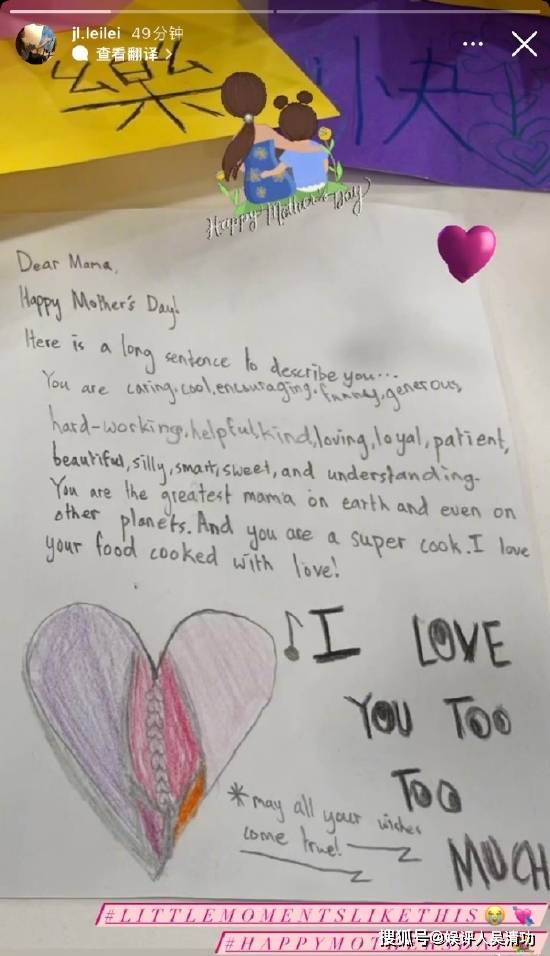 jl.leilei 49分钟
查看翻译 >
樂 快
Happy Mother's Day
Dear Mama,
Happy Mother's Day!
Here is a long sentence to describe you...
You are caring, cool, encouraging, funny, generous,
hard-working, helpful, kind, loving, loyal, patient,
beautiful, silly, smart, sweet, and understanding.
You are the greatest mama on earth and even on
other planets. And you are a super cook. I love
your food cooked with love!
I LOVE
YOU TOO
TOO
MUCH
*may all your wishes
come true!
#LITTLEMOMENTSLIKETHIS
搜狐号@娱评人吴清功